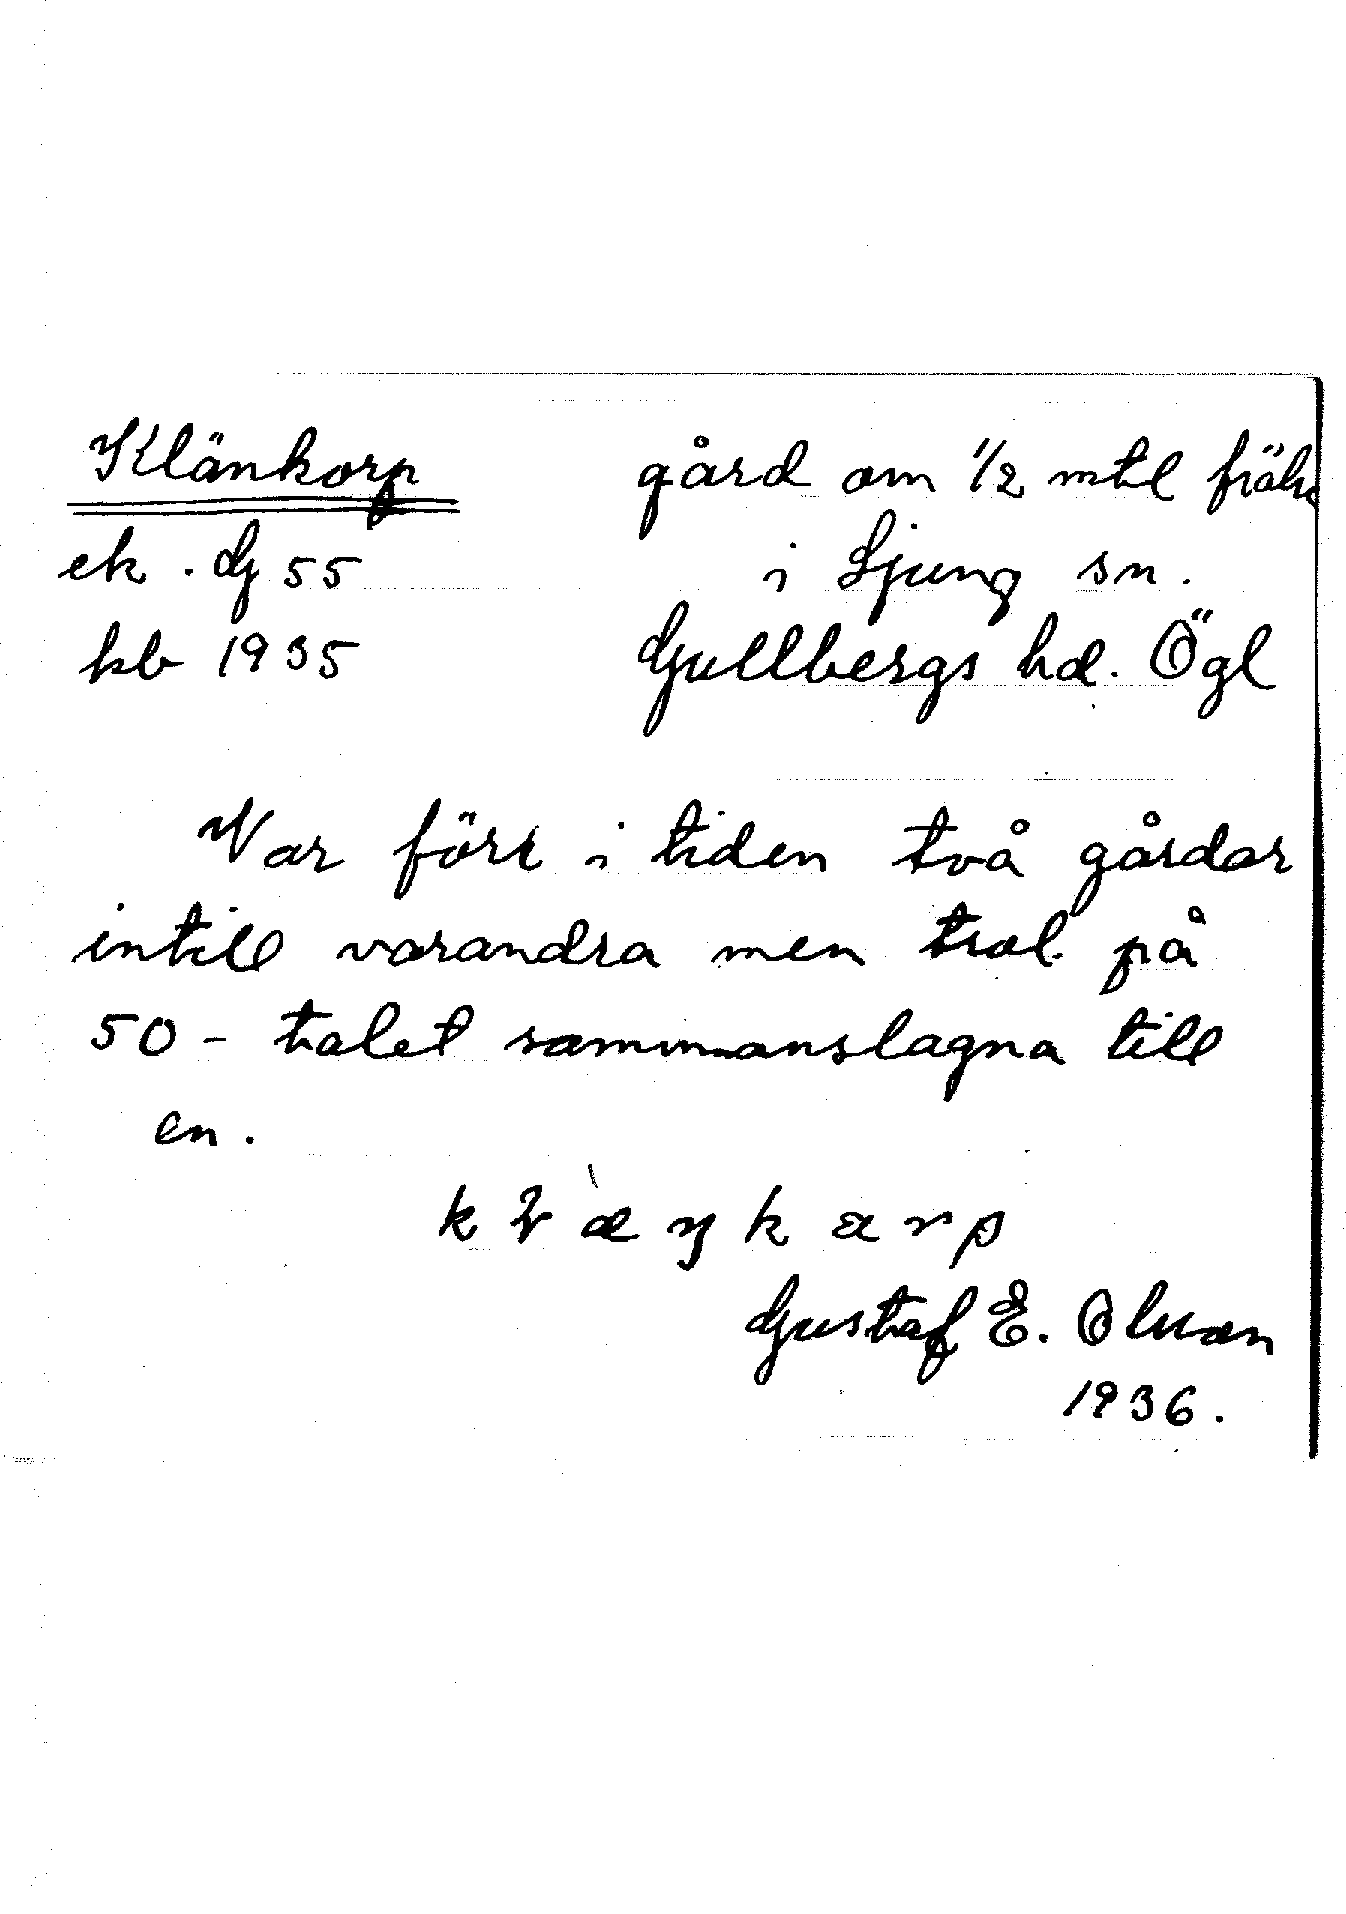 Klänkorp gård om 1/2 mtl frälse
ek. Dg 55 i Ljung sn.
kb 1935 Gullbergs hd. Ögl
Var förr i tiden två gårdar
intill varandra men trol. på
50-talet sammanslagna till
en.
Gustaf E. Olsson
1936.